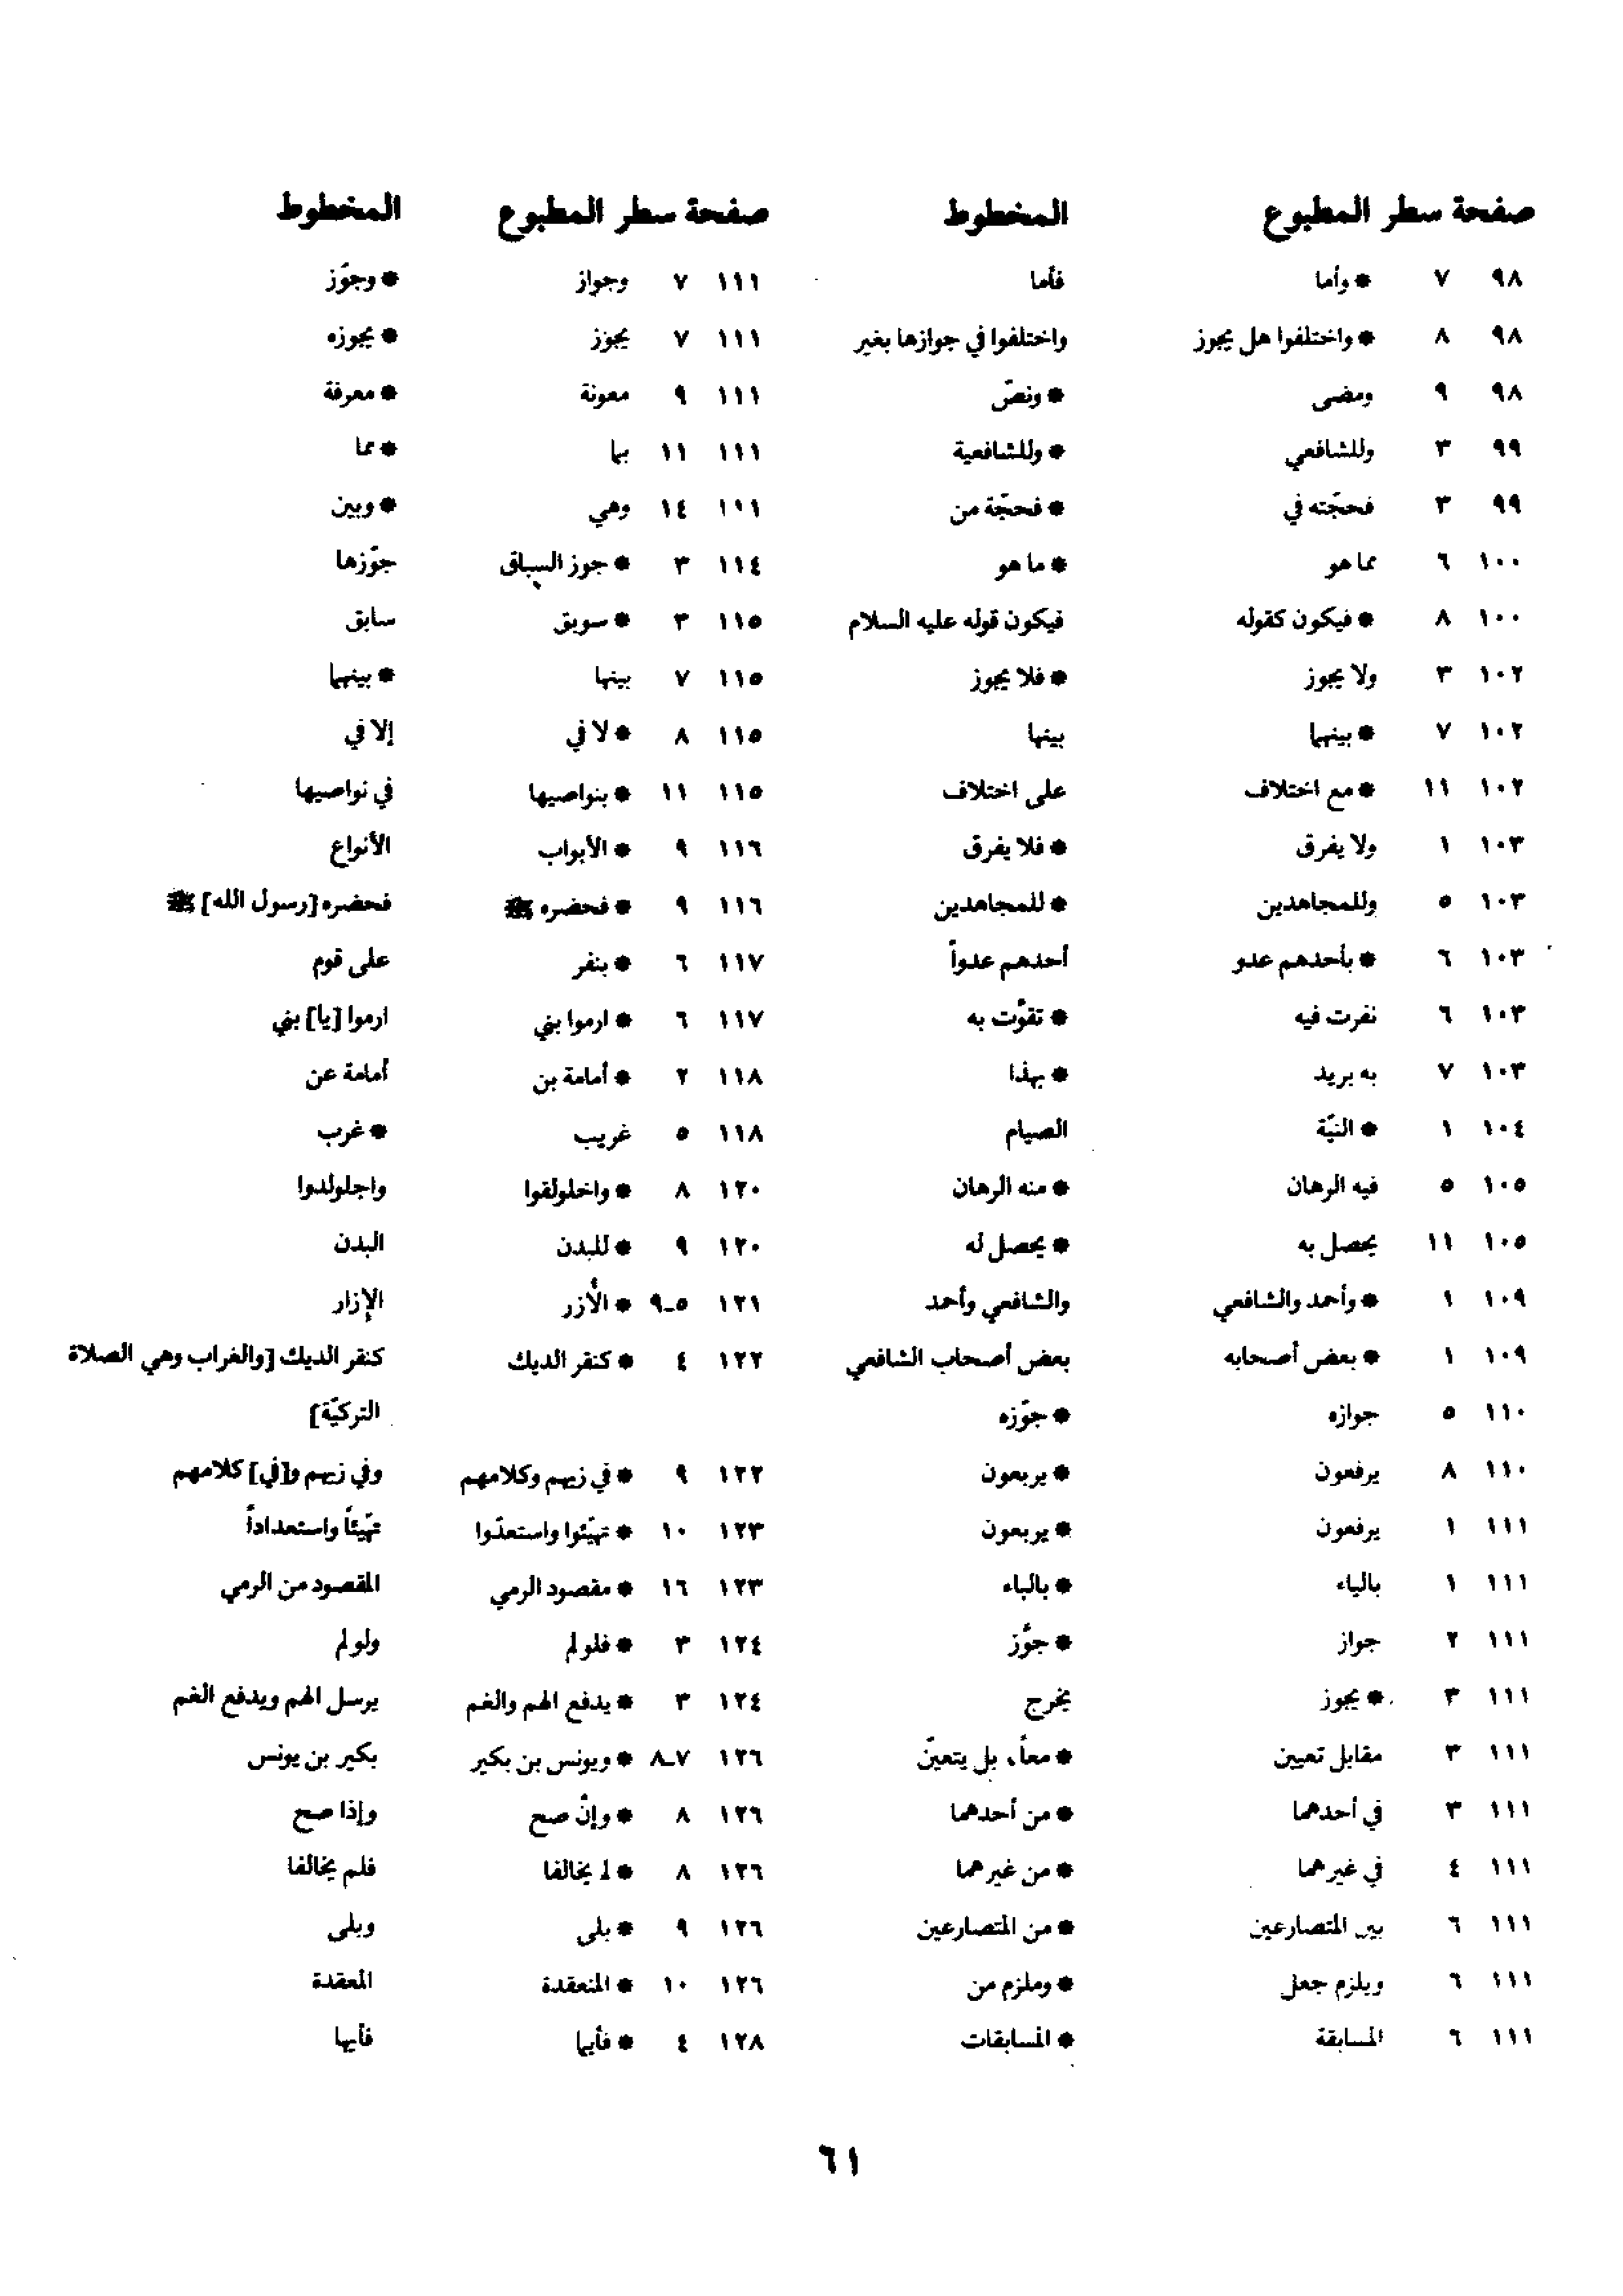 صفحة سطر المطبوع المخطوط
٩٨ ٧ * وأما فأما
٩٨ ٨ * واختلفوا هل يجوز واختلفوا في جوازها بغير
٩٨ ٩ ومضى * ونصّ
٩٩ ٣ وللشافعي * وللشافعية
٩٩ ٣ فحجّته في * فحجّة من
١٠٠ ٦ مما هو * ما هو
١٠٠ ٨ * فيكون كقوله فيكون قوله عليه السلام
١٠٢ ٣ ولا يجوز * فلا يجوز
١٠٢ ٧ * بينهما بينها
١٠٢ ١١ * مع اختلاف على اختلاف
١٠٣ ١ ولا يفرق * فلا يفرق
١٠٣ ٥ وللمجاهدين * للمجاهدين
١٠٣ ٦ * بأحدهم عدو أحدهم عدواً
١٠٣ ٦ نفرت فيه * تقوّت به
١٠٣ ٧ به يريد * بهذا
١٠٤ ١ * النيّة الصيام
١٠٥ ٥ فيه الرهان * منه الرهان
١٠٥ ١١ يحصل به * يحصل له
١٠٩ ١ * وأحمد والشافعي والشافعي وأحمد
١٠٩ ١ * بعض أصحابه بعض أصحاب الشافعي
١١٠ ٥ جوازه * جوّزه
١١٠ ٨ يرفعون * يربعون
١١١ ١ يرفعون * يربعون
١١١ ١ بالياء * بالباء
١١١ ٢ جواز * جوّز
١١١ ٣ * يجوز يخرج
١١١ ٣ مقابل تعيين * معاً، بل يتعيّن
١١١ ٣ في أحدهما * من أحدهما
١١١ ٤ في غيرهما * من غيرهما
١١١ ٦ بين المتصارعين * من المتصارعين
١١١ ٦ ويلزم جعل * وملزم من
١١١ ٦ المسابقة * المسابقات
صفحة سطر المطبوع المخطوط
١١١ ٧ وجواز * وجوّز
١١١ ٧ يجوز * يجوزه
١١١ ٩ معونة * معرفة
١١١ ١١ بما * مما
١١١ ١٤ وهي * وبين
١١٤ ٣ * جوز السباق جوّزها
١١٥ ٣ * سويق سابق
١١٥ ٧ بينها * بينهما
١١٥ ٨ * لا في إلا في
١١٥ ١١ * بنواصيها في نواصيها
١١٦ ٩ * الأبواب الأنواع
١١٦ ٩ * فحضره ﷺ فحضره [رسول الله] ﷺ
١١٧ ٦ * بنفر على قوم
١١٧ ٦ * ارموا بني ارموا [يا] بني
١١٨ ٢ * أمامة بن أمامة عن
١١٨ ٥ غريب * غرب
١٢٠ ٨ * واخلولقوا واجلولدوا
١٢٠ ٩ * للبدن البدن
١٢١ ٥-٩ * الأُزر الإزار
١٢٢ ٤ * كنقر الديك كنقر الديك [والغراب وهي الصلاة
التركيّة]
١٢٢ ٩ * في زيهم وكلامهم وفي زيهم و[في] كلامهم
١٢٣ ١٠ * تهيّئوا واستعدّوا تهيّئاً واستعداداً
١٢٣ ١٦ * مقصود الرمي المقصود من الرمي
١٢٤ ٣ * فلو لم ولو لم
١٢٤ ٣ * يدفع الهم والغم يرسل الهم ويدفع الغم
١٢٦ ٧-٨ * ويونس بن بكير بكير بن يونس
١٢٦ ٨ * وإنْ صح وإذا صح
١٢٦ ٨ * لم يخالفا فلم يخالفا
١٢٦ ٩ * بلى وبلى
١٢٦ ١٠ * المنعقدة المعقدة
١٢٨ ٤ * فأيما فأيها
٦١